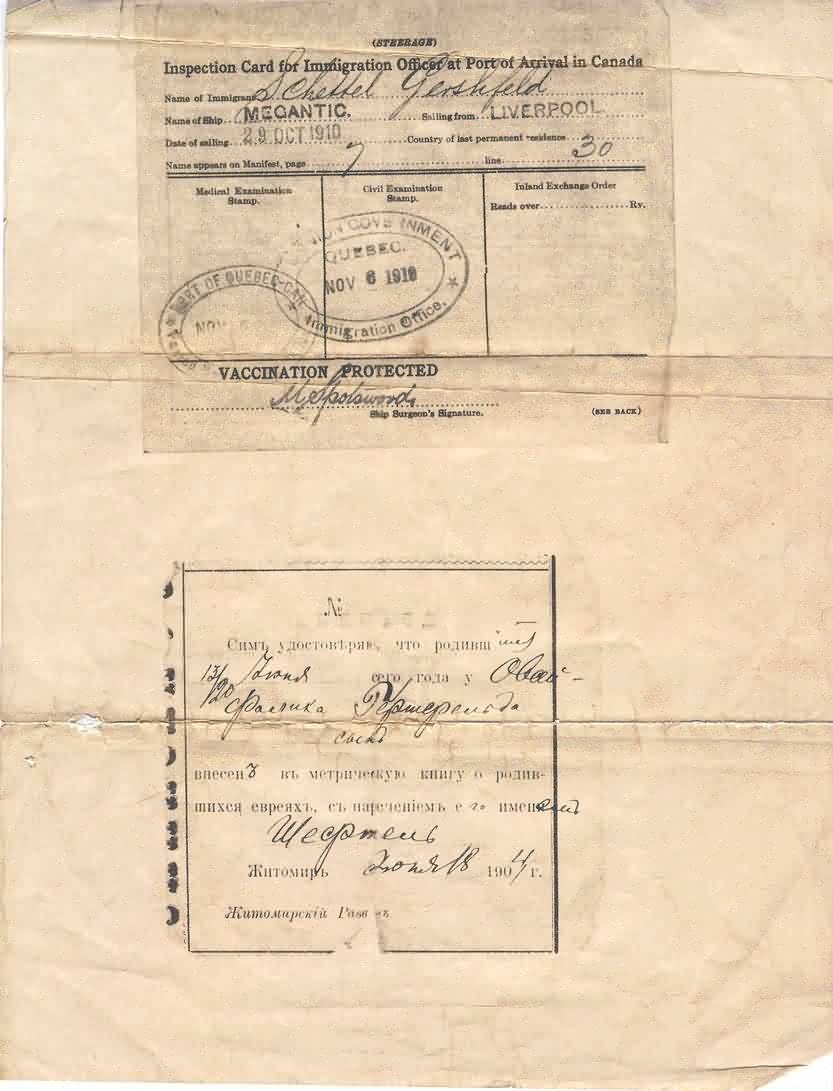 (STEERAGE)
Inspection Card for Immigration Officer at Port of Arrival in Canada
Name of Immigrant Scheftel Gershfeld
Name of Ship MEGANTIC. Sailing from LIVERPOOL
Date of sailing 29 OCT 1910 Country of last permanent residence
Name appears on Manifest, page 7 line 30
Medical Examination Stamp.
Civil Examination Stamp.
Inland Exchange Order
Reads over Ry.
GOVERNMENT
QUEBEC.
NOV 6 1910
Immigration Office.
PORT OF QUEBEC-CAN
NOV
VACCINATION PROTECTED
Ship Surgeon's Signature.
(SEE BACK)
№
Симъ удостовѣряю, что родивш
Іюня сего года у
Фалика Гершфельда
сынъ
внесенъ въ метрическую книгу о родив-
шихся евреяхъ, съ нареченіемъ его именемъ
Шефтель
Житомиръ Іюня 18 1904 г.
Житомирскій Равв